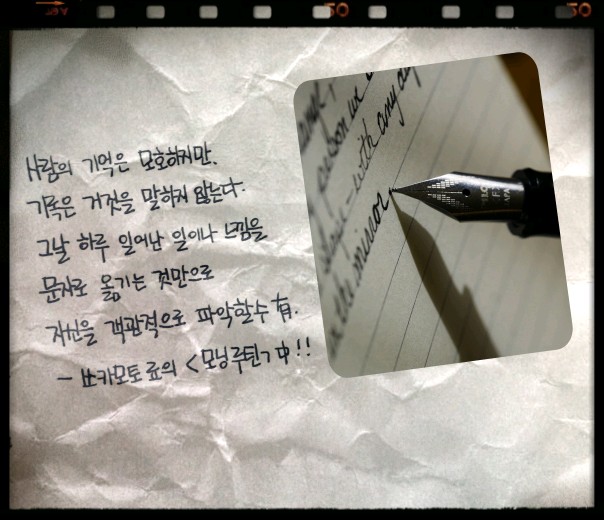 사람의 기억은 모호하지만,
기록은 거짓을 말하지 않는다.
그날 하루 일어난 일이나 느낌을
문자로 옮기는 것만으로
자신을 객관적으로 파악할수 有.
- 쓰카모토 료의 <모닝루틴> 中!!
person we
- with any
the mirror
20
20